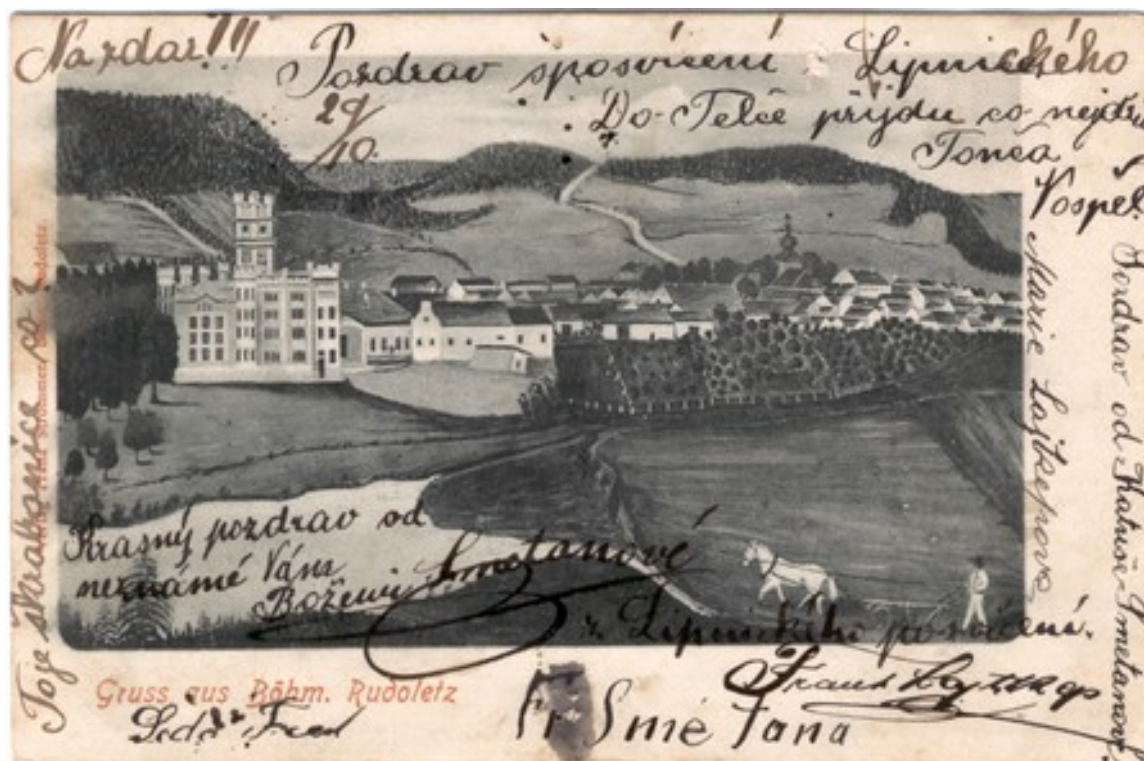 Nazdar!!!
Pozdrav sposvícení Lipnického
29/10.
Do Telče přijdu co nejdřív
Tonča
Vospěl
Marie
Pozdrav od Katuše Smetanové
Toje co?
Krasný pozdrav od
neznámé Vám
Boženy Smetanové
z Lipnického posvícení.
Gruss aus Böhm. Rudoletz
Franz
Fr Smé Tana